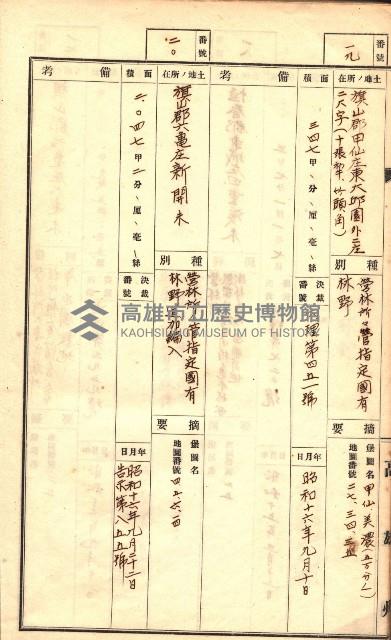 番號
一九
土地ノ所在
旗山郡甲仙庄東大邱園外一庄
二大字(十張犁、竹頭角)
種別
營林所々管指定國有
林野
摘要
堡圖名 甲仙 美濃(五万分ノ一)
地圖番號 二七、三四、三五
面積
三四七甲、分、厘、毫、絲
決裁番號
理第四五一號
年月日
昭和十六年九月十日
備考
番號
二〇
土地ノ所在
旗山郡六龜庄新開
種別
營林所々管指定國有
林野追加編入
摘要
堡圖名
地圖番號 四五、六一四
面積
二、〇四七甲二分、厘、毫、絲
決裁番號
年月日
昭和十六年九月二十二日
告示第八五五號
備考
高雄市立歷史博物館
KAOHSIUNG MUSEUM OF HISTORY
高雄州